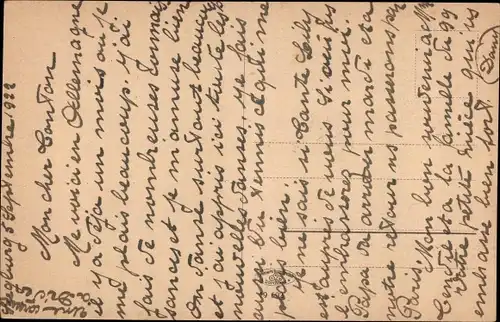 5 Septembre 1922
Mon cher Tonton
Me voici en Allemagne
il y a déjà un mois ou je
me plais beaucoup. J'ai
fais de nombreuses connais
sances et je m'amuse bien
On danse surtout beaucoup
et j'ai appris ici toute les
nouvelles danses. Je fais
aussi du tennis ce qui me
plais bien.
Je ne sais si Tante Lilles
est auprès de vous. Si oui
l'embrasserez pour moi.
Papa va arriver mardi et a
notre retour ns passerons par
Paris. Mon bon souvenir a Mr
et a la famille
Votre petite nièce qui vs
embrasse bien fort.